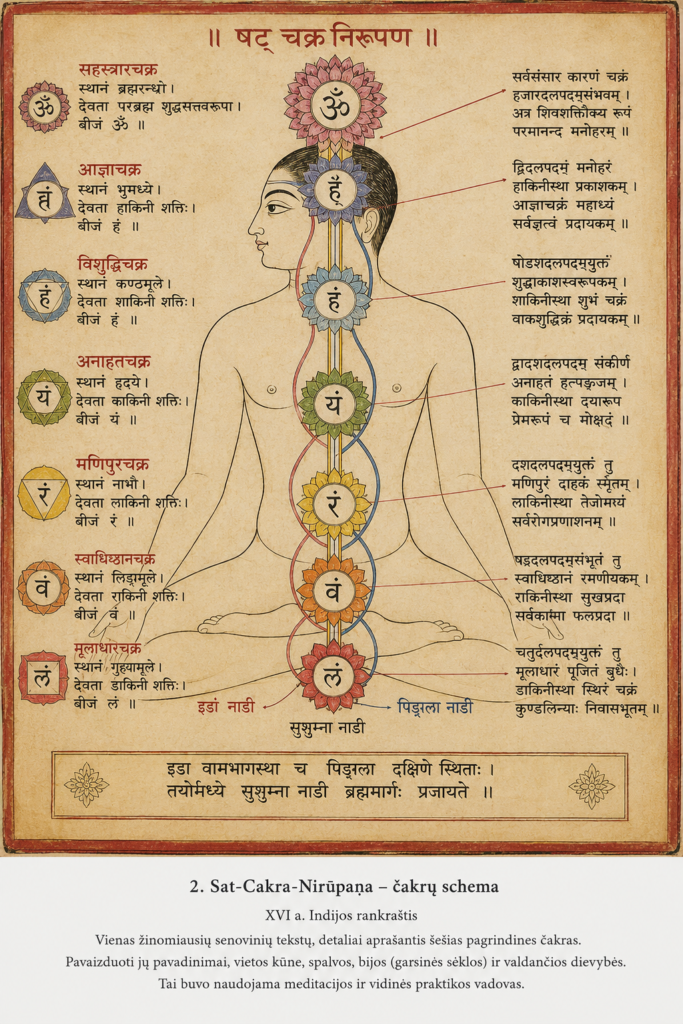 ॥ षट् चक्र निरूपण ॥
सहस्त्रारचक्र
स्थानं ब्रह्मरन्ध्रो ।
देवता परब्रह्म शुद्धसत्तवरूपा ।
बीजं ॐ ॥
ॐ
आज्ञाचक्र
स्थानं भुमध्ये ।
देवता हाकिनी शक्तिः ।
बीजं हं ॥
विशुद्धिचक्र
स्थानं कण्ठमूले ।
देवता शाकिनी शक्तिः ।
बीजं हं ॥
हं
अनाहतचक्र
स्थानं हृदये ।
देवता काकिनी शक्तिः ।
बीजं यं ॥
यं
मणिपुरचक्र
स्थानं नाभौ ।
देवता लाकिनी शक्तिः ।
बीजं रं ॥
रं
स्थानं लिङ्गमूले ।
देवता राकिनी शक्तिः ।
बीजं वं ॥
वं
मूलाधारचक्र
स्थानं
देवता डाकिनी शक्तिः ।
बीजं लं ॥
लं
ॐ
हँ
हं
यं
रं
वं
लं
सर्वसंसार कारणं चक्रं
हजारदलपदम्संभवम् ।
अत्र शिवशक्तीक्य रूपं
परमानन्द मनोहरम् ॥
द्विदलपदमं मनोहरं
हाकिनीस्था प्रकाशकम् ।
आज्ञाचक्रं महाध्यं
सर्वज्ञत्वं प्रदायकम् ॥
षोडशदलपदम्युक्तं
शुद्धाकाशस्वरूपकम् ।
शाकिनीस्था शुभं चक्रं
वाकशुद्धिक्रं प्रदायकम् ॥
द्वादशदलपदम् संकीर्ण
अनाहतं हत्पङ्कजम् ।
काकिनीस्था दयारूप
प्रेमरूपं च मोक्षदं ॥
दशदलपदम्युक्तं तु
मणिपुरं दाहकं स्मृतम् ।
लाकिनीस्था तेजोमय्यं
सर्वरोगप्रणाशनम् ॥
तु
स्वाधिष्ठानं रमणीयकम् ।
राकिनीस्था सुखप्रदा
फलप्रदा ॥
चतुर्दलपदम्युक्तं तु
मूलाधारं पूजितं बुधैः ।
डाकिनीस्था स्थिरं चक्रं
कुण्डलिन्याः निवासभूतम् ॥
इडां नाडी
पिङ्गला नाडी
सुशुम्ना नाडी
इडा वामभागस्था च पिङ्गला दक्षिणे स्थिताः ।
तयोर्मध्ये सुशुम्ना नाडी ब्रह्ममार्गः प्रजायते ॥
2. Sat-Cakra-Nirūpaṇa – čakrų schema
XVI a. Indijos rankraštis
Vienas žinomiausių senovinių tekstų, detaliai aprašantis šešias pagrindines čakras.
Pavaizduoti jų pavadinimai, vietos kūne, spalvos, bijos (garsinės sėklos) ir valdančios dievybės.
Tai buvo naudojama meditacijos ir vidinės praktikos vadovas.